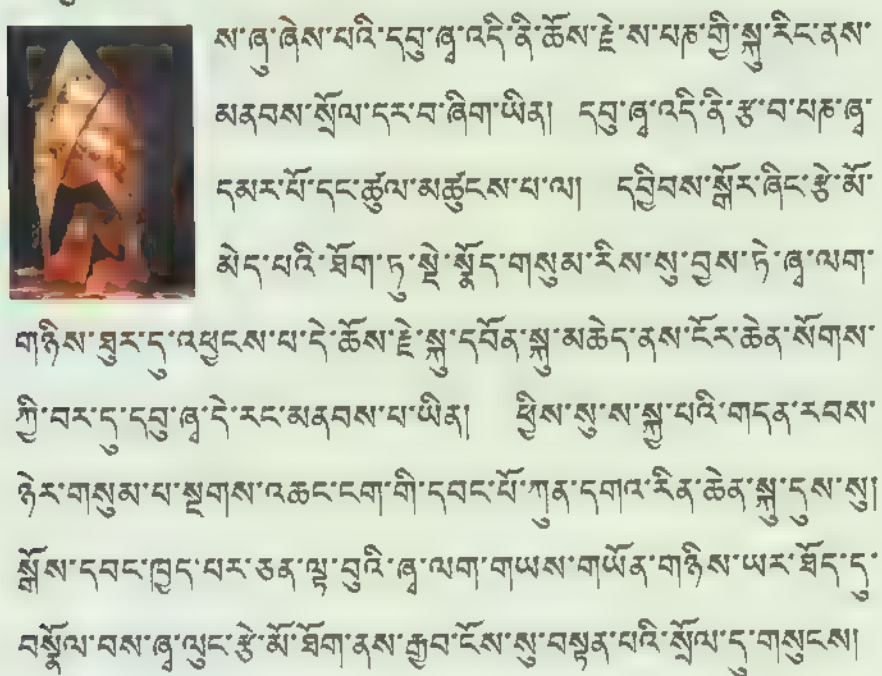 ས་ཞྭ་ཞེས་པའི་དབུ་ཞྭ་འདི་ནི་ཆོས་རྗེ་ས་པཎ་གྱི་སྐུ་རིང་ནས་
མནབས་སྲོལ་དར་བ་ཞིག་ཡིན། དབུ་ཞྭ་འདི་ནི་རྩ་བ་པཎ་ཞྭ་
དམར་པོ་དང་ཚུལ་མཚུངས་པ་ལ། དབྱིབས་སྒོར་ཞིང་རྩེ་མོ་
མེད་པའི་ཐོག་ཏུ་སྡེ་སྣོད་གསུམ་རིས་སུ་བྱས་ཏེ་ཞྭ་ལག་
གཉིས་ཐུར་དུ་འཕྱངས་པ་དེ་ཆོས་རྗེ་སྐུ་དབོན་སྐུ་མཆེད་ནས་ངོར་ཆེན་སོགས་
ཀྱི་བར་དུ་དབུ་ཞྭ་དེ་རང་མནབས་པ་ཡིན། ཕྱིས་སུ་ས་སྐྱ་པའི་གདན་རབས་
ཉེར་གསུམ་པ་སྔགས་འཆང་ངག་གི་དབང་པོ་ཀུན་དགའ་རིན་ཆེན་སྐུ་དུས་སུ།
སྒོས་དབང་ཁྱད་པར་ཅན་ལྟ་བུའི་ཞྭ་ལག་གཡས་གཡོན་གཉིས་ཡར་ཐོད་དུ་
བསྣོལ་བས་ཞྭ་ལུང་རྩེ་མོ་ཐོག་ནས་རྒྱབ་ངོས་སུ་བསྟན་པའི་སྲོལ་དུ་གསུངས།